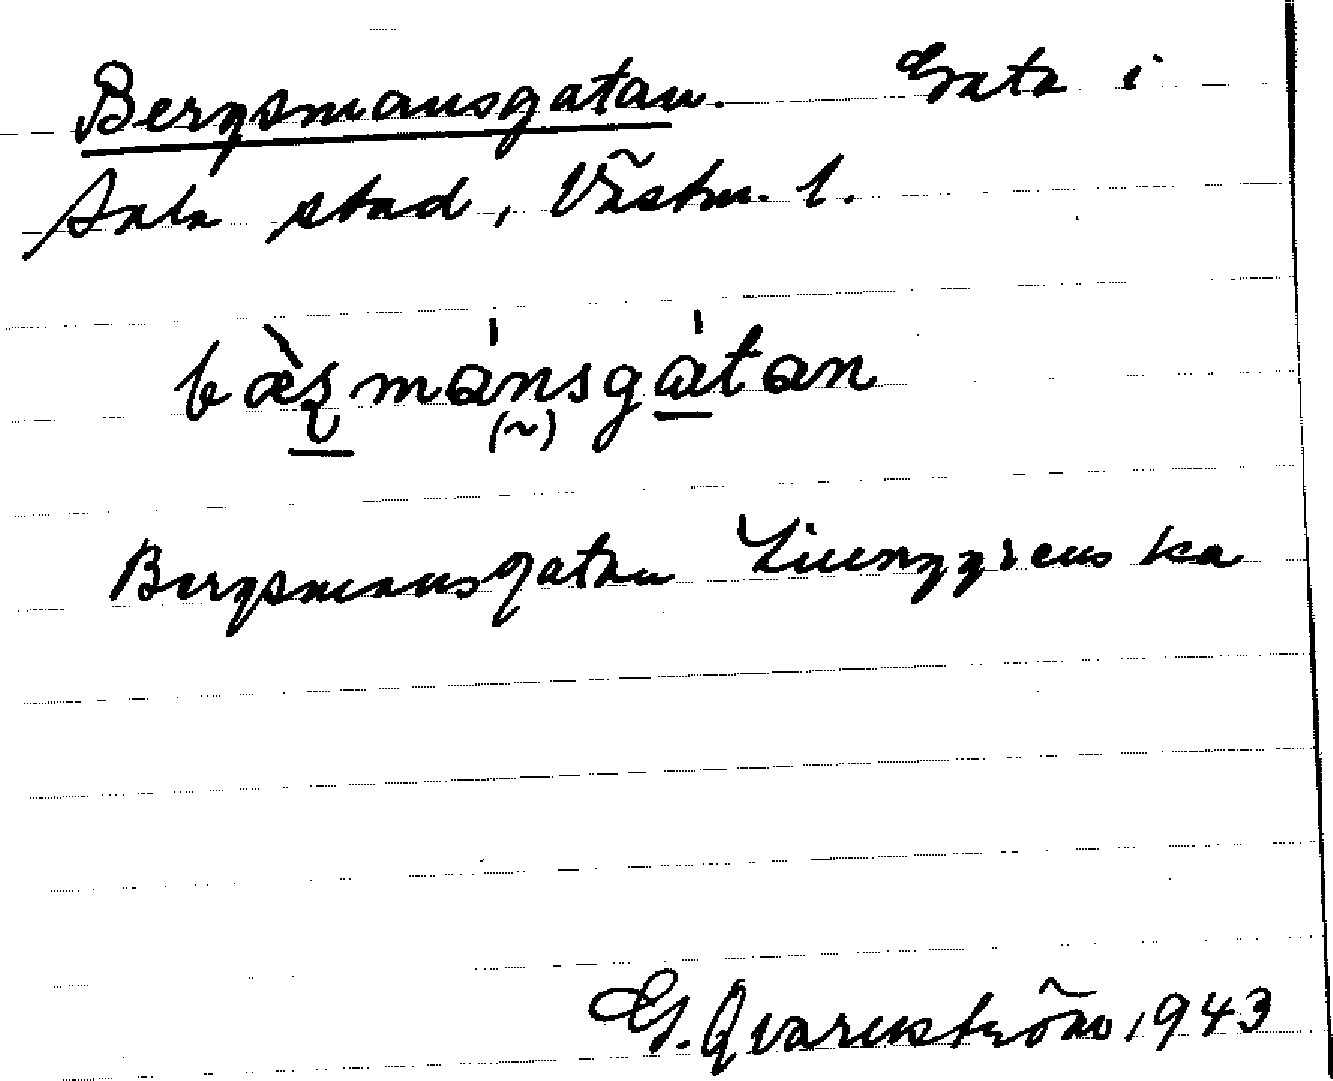 Bergsmansgatan. Gata i
Sala stad, Västm. l.
bæ̀ʂmánsgátan
(~)
Bergsmansgatan Liunggrenska
G. Qvarnström, 1943